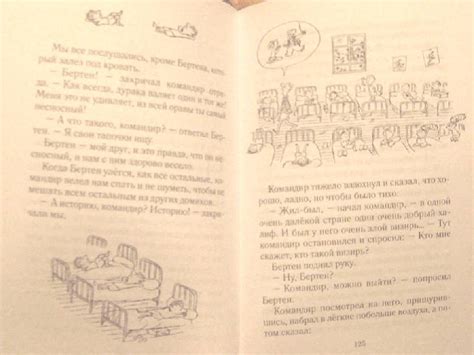 Мы все послушались, кроме Бертена, кото-
рый залез под кровать.
— Бертен! — закричал командир
— Как всегда, дурака валяет один и тот же!
Меня это не удивляет, из всей оравы ты самый
несносный!
— А что такого, командир? — ответил Бер-
тен. — Я свои тапочки ищу.
Бертен — мой друг, и это правда, что он не-
сносный, и нам с ним здорово весело.
Когда Бертен улёгся, как все остальные, ко-
мандир велел нам спать и не шуметь, чтобы не
мешать всем остальным из других домиков.
— А историю, командир? Историю! — закри-
чали мы.
Командир тяжело вздохнул и сказал, что хо-
рошо, ладно, но чтобы было тихо.
— Жил-был, — начал командир, — в одной
очень далёкой стране один очень добрый ха-
лиф. И был у него очень злой визирь... — Тут
командир остановился и спросил: — Кто мне
скажет, что такое визирь?
Бертен поднял руку.
— Ну, Бертен?
— Командир, можно выйти? — попросил
Бертен.
Командир посмотрел на него, прищурив-
шись, набрал в лёгкие побольше воздуха, а по-
том сказал:
125